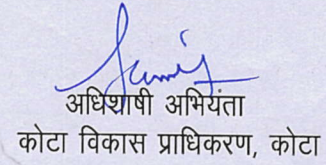 अधिशाषी अभियंता
कोटा विकास प्राधिकरण, कोटा